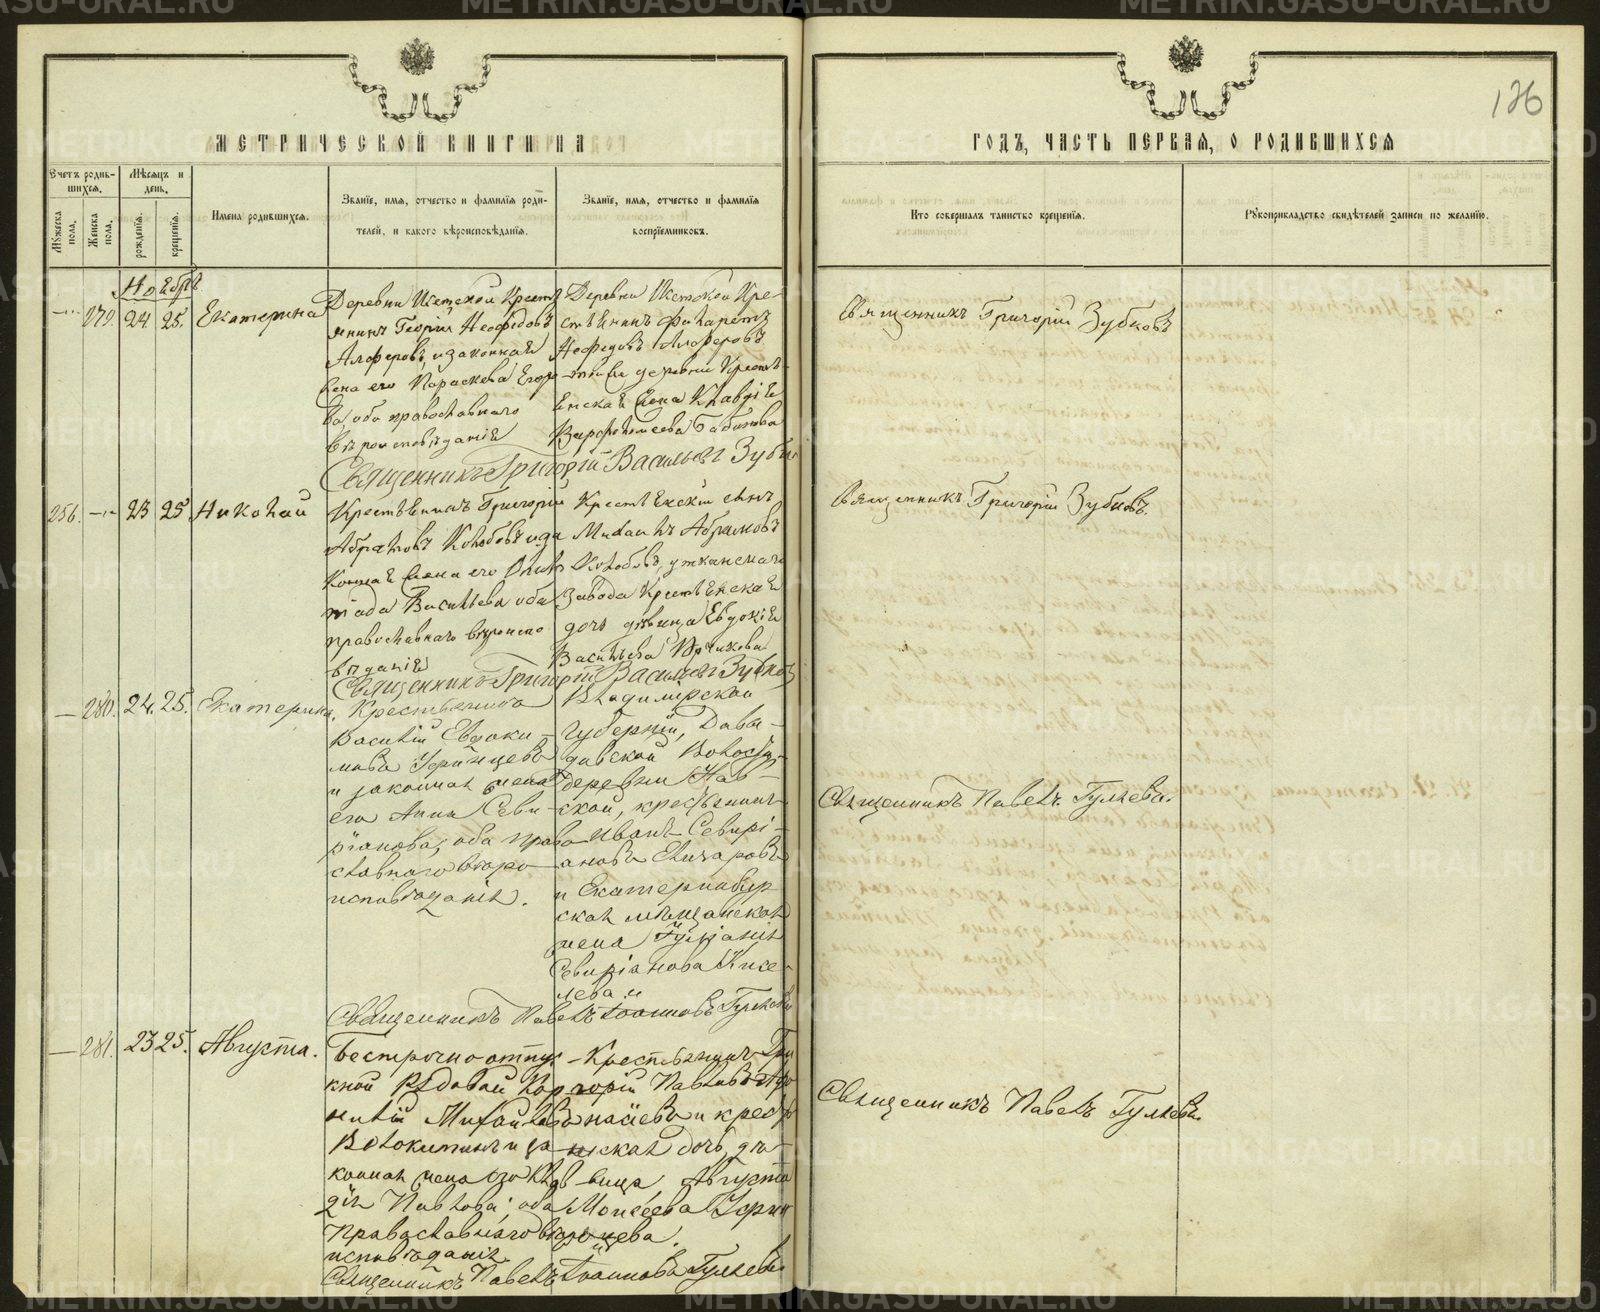 126
МЕТРИЧЕСКОЙ КНИГИ НА
ГОДЪ, ЧАСТЬ ПЕРВАЯ, О РОДИВШИХСЯ
Счетъ родив-
шихся.
Мужеска
пола.
Женска
пола.
Мѣсяцъ и
день.
рожденія.
крещенія.
Имена родившихся.
Званіе, имя, отчество и фамилія роди-
телей, и какого вѣроисповѣданія.
Званіе, имя, отчество и фамилія
воспріемниковъ.
Кто совершалъ таинство крещенія.
Рукоприкладство свидѣтелей записи по желанію.
Ноябрь
279. 24 25. Екатерина
Деревни Истокой Крестья
янинъ Георгій Неофедовъ
Алферовъ, и законная
жена его Параскева Егоро
ва, оба православнаго
вѣроисповѣданія
Деревни Истокой Кре-
стьянинъ Филаретъ
Нефедовъ Алферовъ
деревни Крестья-
енская жена Клавдія
Варфоломеева Бабинова
Священникъ Григорій Зубковъ
Священникъ Григорій Васильев Зубк
256. 23 25 Николай
Крестьянинъ Григорій
Абрамовъ Колобовъ и за
конная жена его Олимп
іада Васильева оба
православнаго вѣроиспо
вѣданія
Крестьянскій сынъ
Михаилъ Абрамовъ
Колобовъ, уткинскаго
Завода Крестьянская
дочь дѣвица Евдокія
Васильева
Священникъ Григорій Зубковъ.
Священникъ Григорій Васильев Зубковъ
280. 24. 25. Екатерина.
Крестьянинъ
Василій Евдоки-
мовъ
и законная жена
его Анна Севи-
ріанова; оба право
славнаго вѣро-
исповѣданія.
Владимірской
Губерніи, Давы-
довской Волости-
Деревни
ской, крестьянинъ
Иванъ Севирі-
ановъ
и Екатеринбур
ская мѣщанская
жена Іуліанія
Севиріанова Кисе-
лева.
Священникъ Павелъ Гуляевъ.
Священникъ Павелъ Іоанновъ Гуляевъ
281. 23 25. Августа.
Безсрочно отпус-
кной Рядовой Кор
нилій Михайловъ
Волокитинъ и за-
конная жена его Клав
дія Павлова; оба
Православнаго вѣро
исповѣданія
Крестьянинъ Гри
горій Павловъ Афо
насіевъ и крестья
нская дочь, дѣ-
вица Августа
Моисеева
Священникъ Павелъ Гуляевъ.
Священникъ Павелъ Іоанновъ Гуляевъ
METRIKI.GASO-URAL.RU